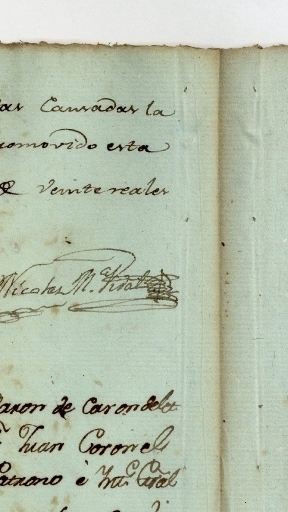 Causadas la
omovido esta
veinte reales
Nicolas M.ª Vidal
Baron de Carondelet
Juan Coronel
Patrono è Int.e Gral